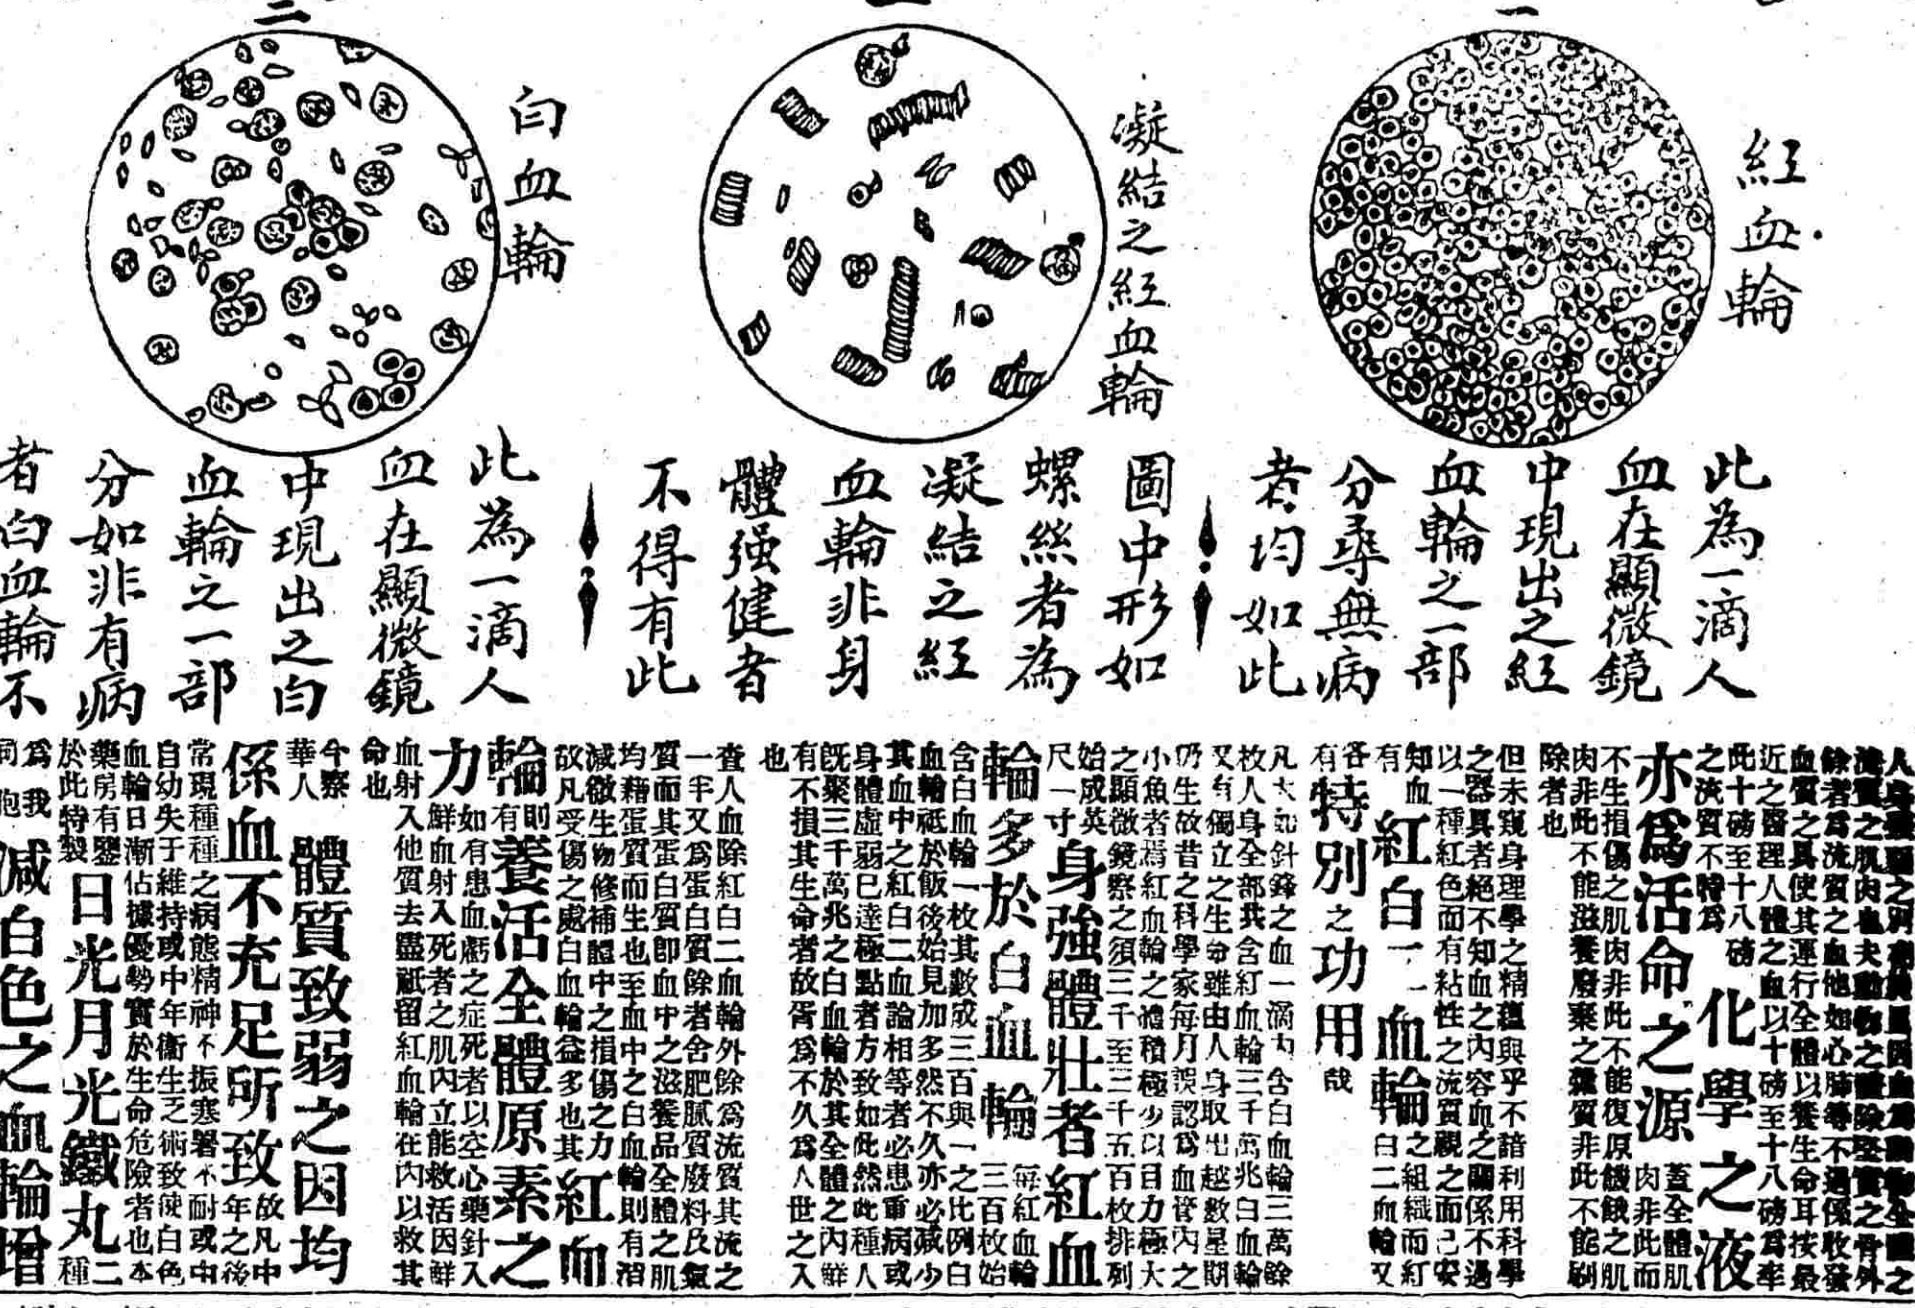 一
紅血輪
此為一滴人
血在顯微鏡
中現出之紅
血輪之一部
分尋無病
者均如此
凝結之紅血輪
圖中形如
螺絲者為
凝結之紅
血輪非身
體强健者
不得有此
三
白血輪
此為一滴人
血在顯微鏡
中現出之白
血輪之一部
分如非有病
者白血輪不
餘者為流質之血他如心肺等不過係收發
血質之具使其運行全體以養生命耳按最
近之醫理人體之血以十磅至十八磅為率
此十磅至十八磅
之流質不特為
化學之液
亦為活命之源
蓋全體肌
肉非此而
不生損傷之肌肉非此不能復原饑餓之肌
肉非此不能滋養廢棄之雜質非此不能刷
除者也
但未窺身理學之精蘊與乎不諳利用科學
之器具者絕不知血之內容血之關係不過
以一種紅色而有粘性之流質視之而已安
知血
有
紅白二血輪
之組織而紅
白二血輪又
各
有
特別之功用
哉
凡大如針鋒之血一滴內含白血輪三萬餘
枚人身全部共含紅血輪三千萬兆白血輪
又有獨立之生命雖由人身取出越數星期
仍生故昔之科學家每月誤認為血管內之
小魚者焉紅血輪之體積極少以目力極大
之顯微鏡察之須三千至三千五百枚排列
始成英
尺一寸
身強體壯者紅血
輪多於白血輪
每紅血輪
三百枚始
含白血輪一枚其數成三百與一之比例白
血輪祗於飯後始見加多然不久亦必減少
其血中之紅白二血論相等者必患重病或
身體虛弱已達極點者方致如此然此種人
既聚三千萬兆之白血輪於其全體之內鮮
有不損其生命者故胥為不久為人世之人
也
查人血除紅白二血輪外餘為流質其流之
一半又為蛋白質餘者含肥膩質廢料及氣
質而其蛋白質卽血中之滋養品全體之肌
均藉蛋質而生也至血中之白血輪則有消
減微生物修補體中之損傷之力
故凡受傷之處白血輪益多也其
紅血
輪
則
有
養活全體原素之
力
如有患血虧之症死者以空心藥針入
鮮血射入死者之肌內立能救活因鮮
血射入他質去盡祇留紅血輪在內以救其
命也
今察
華人
體質致弱之因均
係血不充足所致
故凡中
年之後
常現種種之病態精神不振寒暑不耐或中
自幼失于維持或中年衞生乏術致使白色
血輪日漸佔據優勢實於生命危險者也本
藥房有鑒
於此特製
日光月光鐵丸二
種
為我
同胞
減白色之血輪增